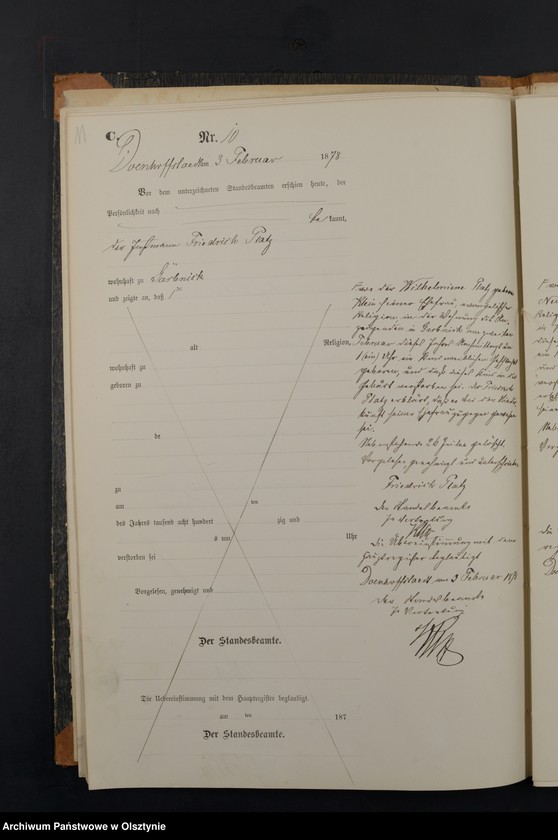 11.
C.
Nr. 10
Doenhoffstaedt am 3 Februar 1878
Vor dem unterzeichneten Standesbeamten erschien heute, der
Persönlichkeit nach
be kannt,
der Friedrich Platz
wohnhaft zu
und zeigte an, daß
Frau der Wilhelmine Platz geborene
Klein seiner Ehefrau, evangelischer
Religion, in der Wohnung des An-
zeigenden in am zweiten
Religion, Februar dieses Jahres Nachmittags um
alt
1 (ein) Uhr ein Kind weiblichen Geschlechts
wohnhaft zu
geboren, und daß dieses Kind in der
geboren zu
Geburt verstorben sei. Der Friedrich
Platz erklärt, daß er bei der Nieder-
kunft seiner Ehefrau zugegen gewesen
sei.
de
Nebenstehende 26 Zeilen gelöscht.
Vorgelesen, genehmigt und unterschrieben
zu
Friedrich Platz
am ten
Der Standesbeamte
des Jahres tausend acht hundert zig und
In Vertretung
um Uhr
Die Übereinstimmung mit dem
verstorben sei
Hauptregister beglaubigt
Doenhoffstaedt am 3 Februar 1878
Vorgelesen, genehmigt und
Der Standesbeamte
In Vertretung
Der Standesbeamte.
Die Uebereinstimmung mit dem Hauptregister beglaubigt.
am ten 187
Der Standesbeamte.
Archiwum Państwowe w Olsztynie